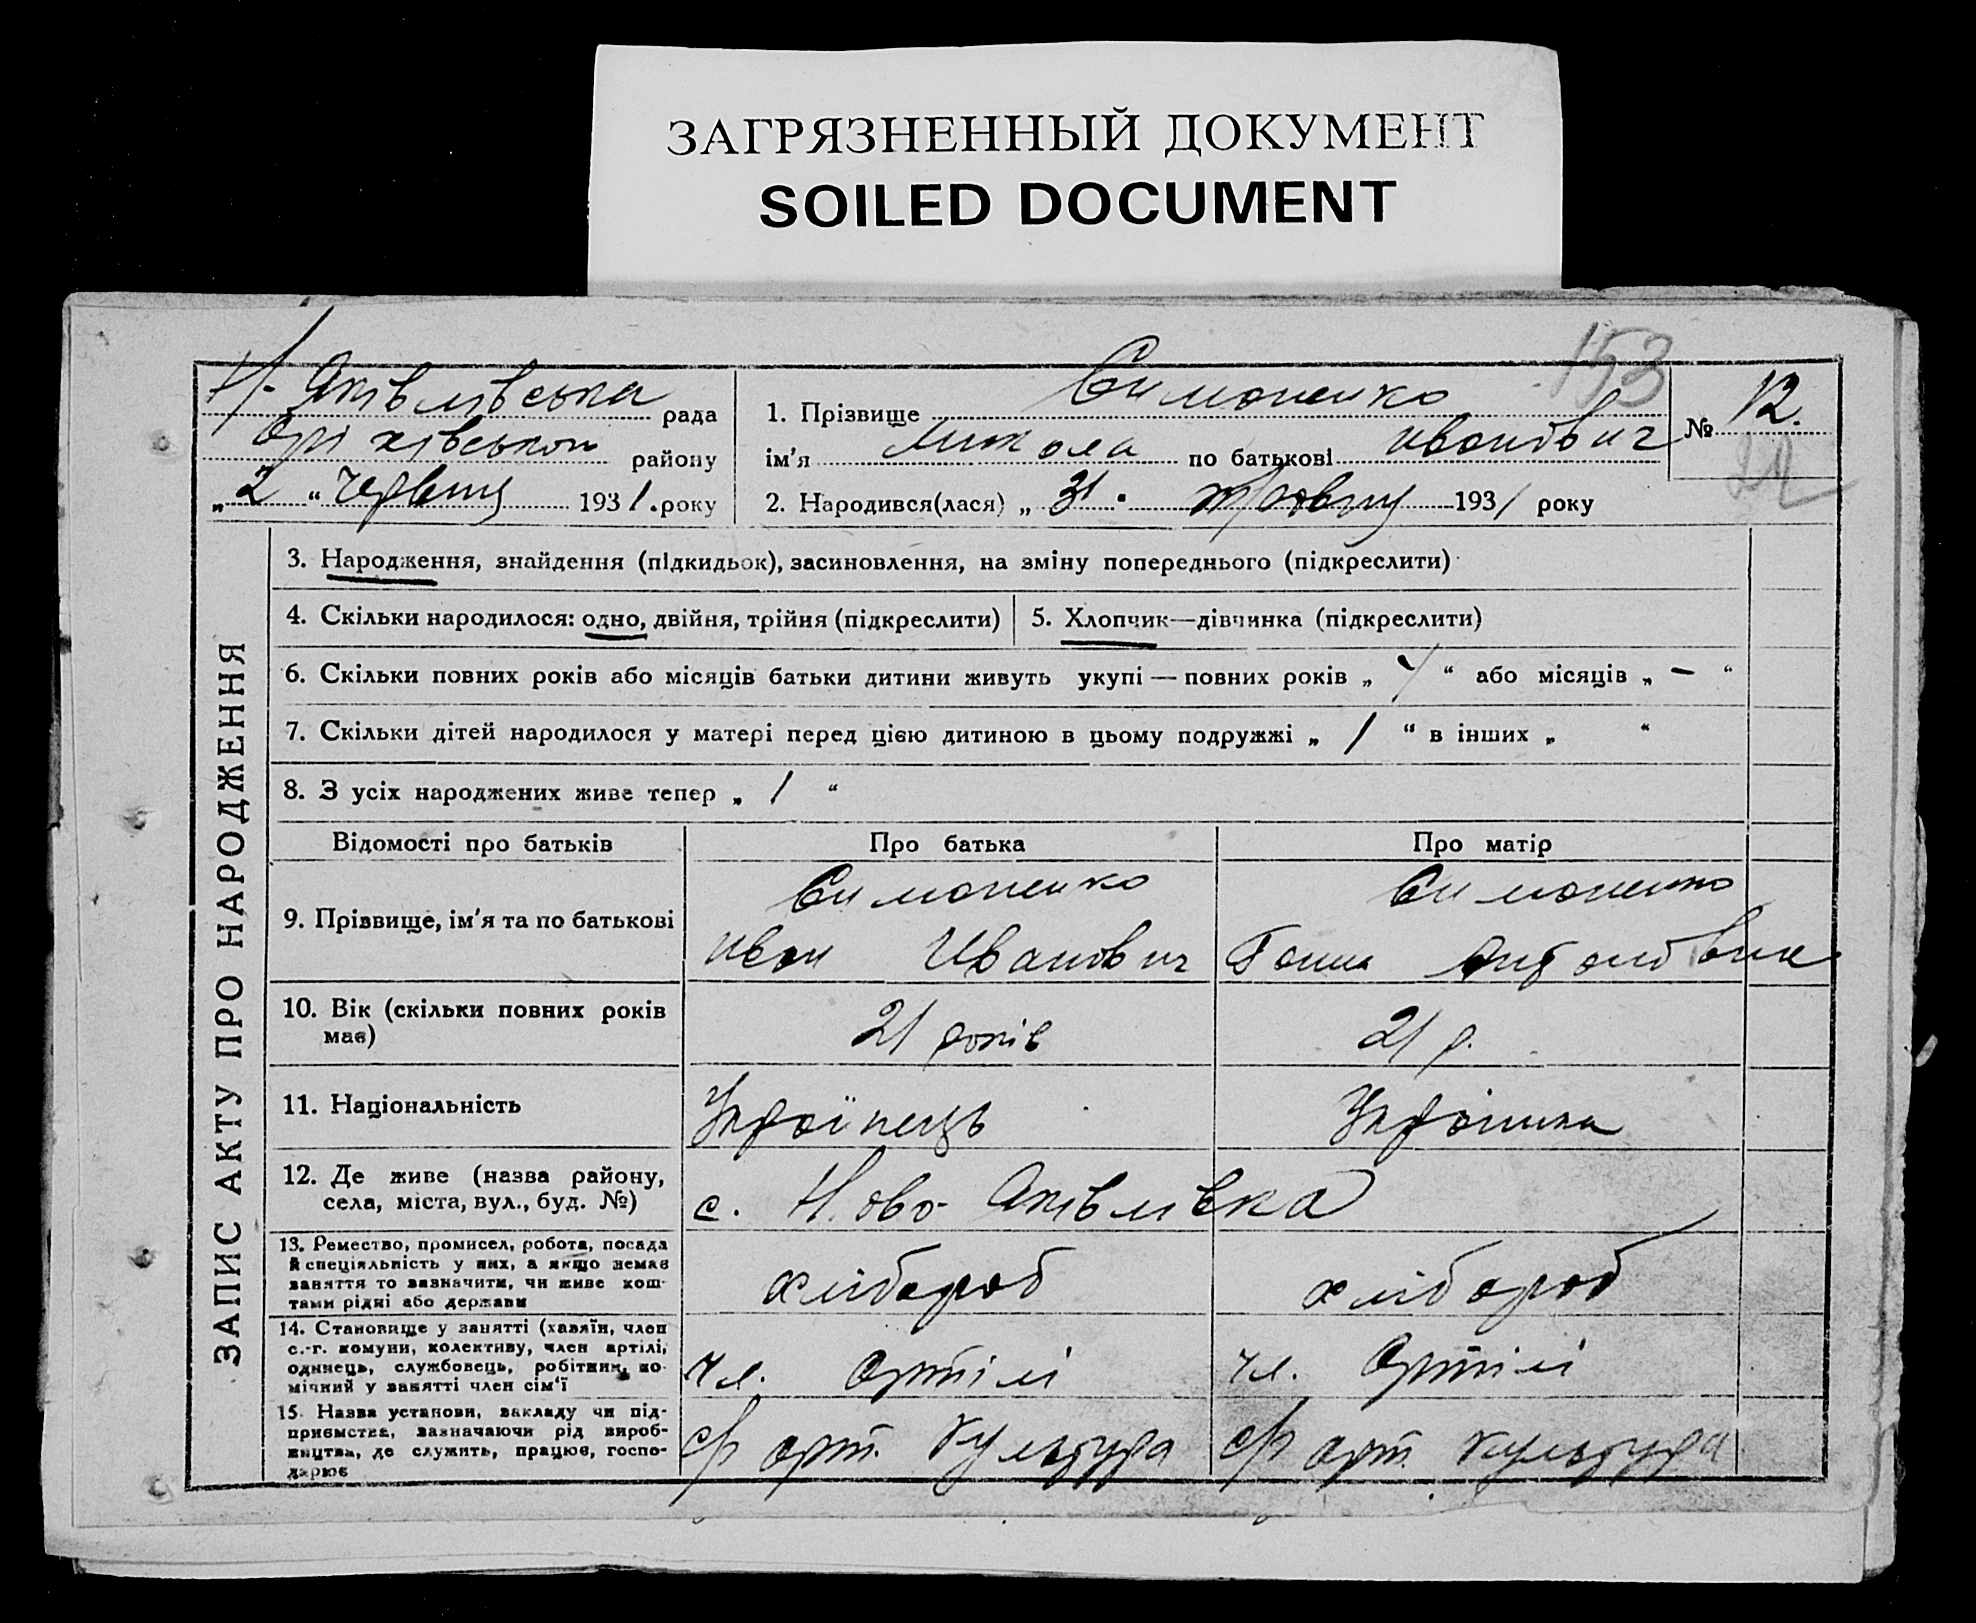 ЗАГРЯЗНЕННЫЙ ДОКУМЕНТ
SOILED DOCUMENT
153
Н-Яківлівська рада
Оріхівського району
„2“ Червня 1931. року
1. Прізвище Симоненко
ім'я Микола по батькові Иванович
№ 12.
2. Народився(лася) „31. травня 1931 року
ЗАПИС АКТУ ПРО НАРОДЖЕННЯ
3. Народження, знайдення (підкидьок), засиновлення, на зміну попереднього (підкреслити)
4. Скільки народилося: одно, двійня, трійня (підкреслити)
5. Хлопчик—дівчинка (підкреслити)
6. Скільки повних років або місяців батьки дитини живуть укупі — повних років „ “ або місяців „ – “
7. Скільки дітей народилося у матері перед цією дитиною в цьому подружжі „ 1 “ в інших „ “
8. З усіх народжених живе тепер „ 1 “
Відомості про батьків
Про батька
Про матір
9. Прізвище, ім'я та по батькові
Симоненко
Иван Иванович
Симоненко
Ганна Антоновна
10. Вік (скільки повних років
має)
21 років
21 р.
11. Національність
Українець
Українка
12. Де живе (назва району,
села, міста, вул., буд. №)
с. Ново-Яківлівка
13. Ремество, промисел, робота, посада
й спеціяльність у них, а якщо немає
заняття то зазначити, чи живе кош-
тами рідні або держави
хлібороб
хлібороб
14. Становище у занятті (хазяїн, член
с.-г. комуни, колективу, член артілі,
одинець, службовець, робітник, по-
мічний у занятті член сім'ї
чл. Артілі
чл. Артілі
15. Назва установи, закладу чи під-
приємства, зазначаючи рід вироб-
ництва, де служить, працює, госпо-
дарює
с/г арт. Культура
с/г арт. Культура